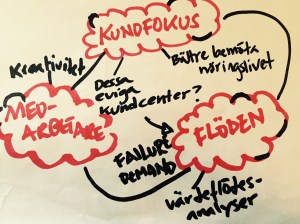 KUNDFOKUS
Kreativitet
Bättre bemöta
näringslivet
Dessa
eviga
kundcenter?
MED-
ARBETARE
FLÖDEN
FAILURE
DEMAND
värdeflödes-
analyser